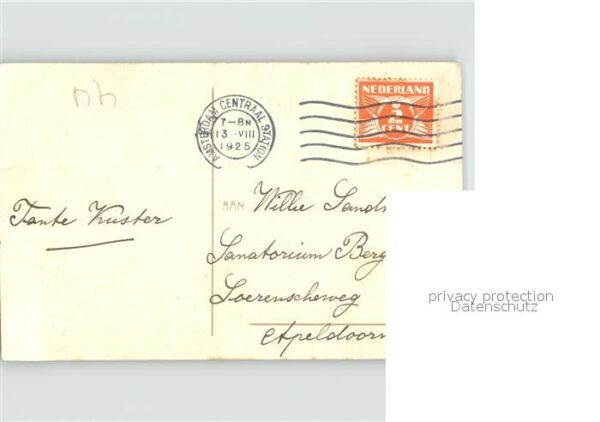 NEDERLAND
½
CENT
AMSTERDAM CENTRAAL STATION
7-8N
13 VIII
1925
AAN Willie
Tante Kuster
Sanatorium Berg
Loerenscheweg
Apeldoorn
privacy protection
Datenschutz